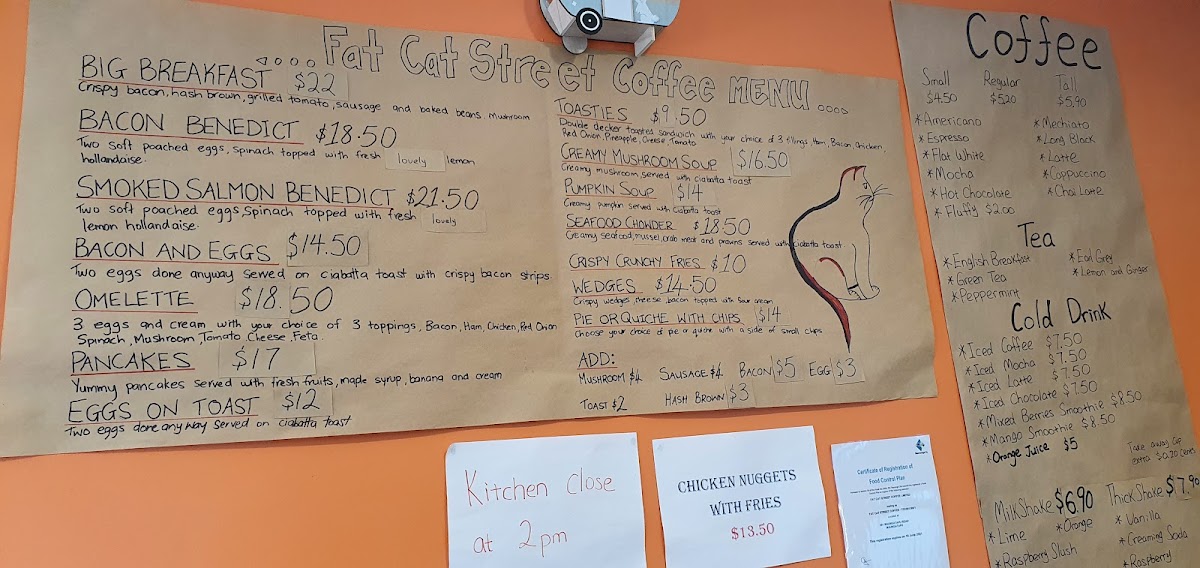 ....Fat Cat Street Coffee MENU....
BIG BREAKFAST $22
Crispy bacon, hash brown, grilled tomato, sausage and baked beans. Mushroom
BACON BENEDICT $18.50
Two soft poached eggs, spinach topped with fresh lovely lemon
hollandaise.
SMOKED SALMON BENEDICT $21.50
Two soft poached eggs, Spinach topped with fresh lovely
lemon hollandaise.
BACON AND EGGS $14.50
Two eggs done anyway served on ciabatta toast with crispy bacon strips.
OMELETTE $18.50
3 eggs and cream with your choice of 3 toppings, Bacon, Ham, Chicken, Red Onion
Spinach, Mushroom, Tomato, Cheese, Feta.
PANCAKES $17
Yummy pancakes served with fresh fruits, maple syrup, banana and cream
EGGS ON TOAST $12
Two eggs done any way served on ciabatta toast
TOASTIES $9.50
Double decker toasted sandwich with your choice of 3 fillings Ham, Bacon, Chicken,
Red Onion, Pineapple, Cheese, Tomato
CREAMY MUSHROOM SOUP $16.50
Creamy mushroom, served with ciabatta toast
PUMPKIN SOUP $14
Creamy pumpkin served with ciabatta toast
SEAFOOD CHOWDER $18.50
Creamy seafood, mussel, crab meat and prawns served with ciabatta toast
CRISPY CRUNCHY FRIES $10
WEDGES $14.50
Crispy wedges, cheese, bacon topped with sour cream
PIE OR QUICHE WITH CHIPS $14
Choose your choice of pie or quiche with a side of small chips
ADD:
MUSHROOM $4 SAUSAGE $4 BACON $5 EGG $3
TOAST $2 HASH BROWN $3
Coffee
Small Regular Tall
$4.50 $5.20 $5.90
*Americano
*Espresso
*Flat White
*Mocha
*Hot Chocolate
*Fluffy $2.00
*Mochiato
*Long Black
*Latte
*Cappuccino
*Chai Latte
Tea
*English Breakfast
*Green Tea
*Peppermint
*Earl Grey
*Lemon and Ginger
Cold Drink
*Iced Coffee $7.50
*Iced Mocha $7.50
*Iced Latte $7.50
*Iced Chocolate $7.50
*Mixed Berries Smoothie $8.50
*Mango Smoothie $8.50
*Orange Juice $5
Take away cup
extra $0.20 cents
MilkShake $6.90 ThickShake $7.90
*Lime *Orange
*Raspberry Slush
*Vanilla
*Creaming Soda
*Raspberry
Kitchen close
at 2pm
CHICKEN NUGGETS
WITH FRIES
$13.50
Certificate of Registration of
Food Control Plan